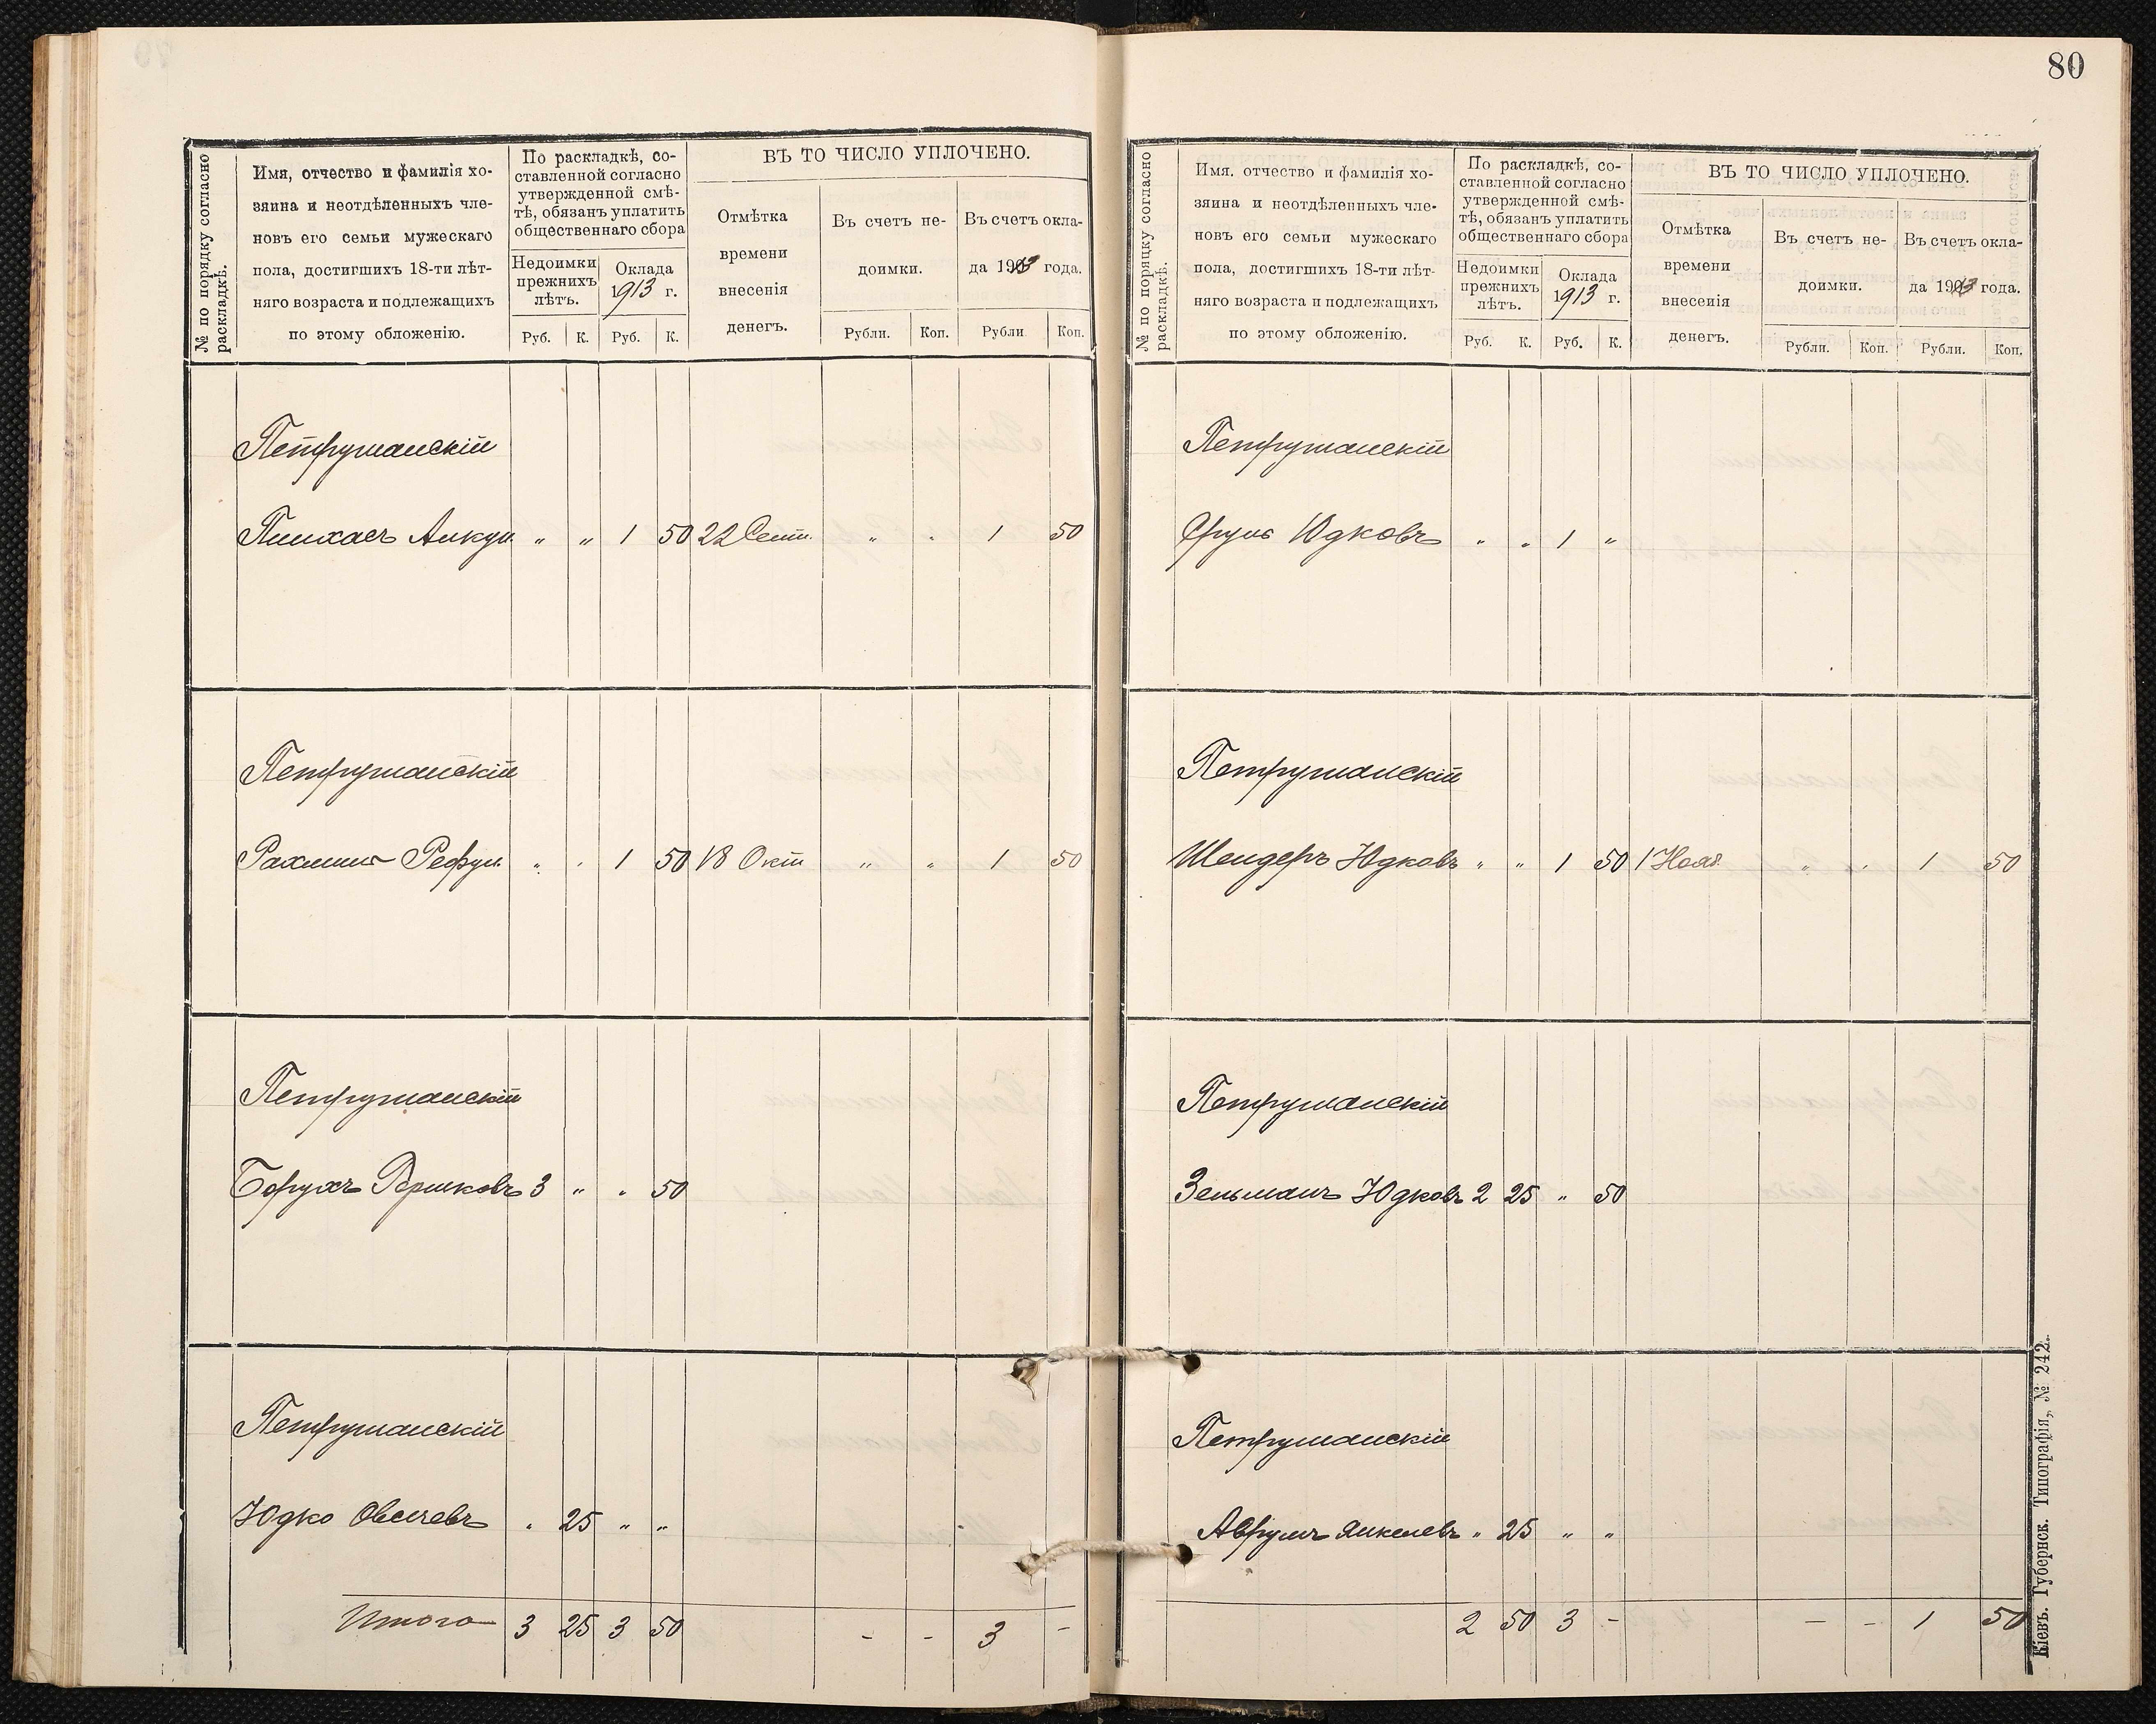 80
№ по порядку согласно
раскладкѣ.
Имя, отчество и фамилія хо-
зяина и неотдѣленныхъ чле-
новъ его семьи мужескаго
пола, достигшихъ 18-ти лѣт-
няго возраста и подлежащихъ
по этому обложенію.
По раскладкѣ, со-
ставленной согласно
утвержденной смѣ-
тѣ, обязанъ уплатить
общественнаго сбора
Недоимки
прежнихъ
лѣтъ.
Оклада
1913 г.
Руб. К. Руб. К.
ВЪ ТО ЧИСЛО УПЛОЧЕНО.
Отмѣтка
времени
внесенія
денегъ.
Въ счетъ не-
доимки.
Въ счетъ окла-
да 1913 года.
Рубли. Коп. Рубли Коп.
Петрушанскій
Пинхасъ " " 1 50 22 Сент. " " 1 50
Петрушанскій
Рахмиль Рефул. " " 1 50 18 Окт " " 1 50
Петрушанскій
Борухъ Гершковъ 3 " " 50
Петрушанскій
Юдко Овсеевъ " 25 " "
Итого 3 25 3 50 - - 3 -
№ по порядку согласно
раскладкѣ.
Имя, отчество и фамилія хо-
зяина и неотдѣленныхъ чле-
новъ его семьи мужескаго
пола, достигшихъ 18-ти лѣт-
няго возраста и подлежащихъ
по этому обложенію.
По раскладкѣ, со-
ставленной согласно
утвержденной смѣ-
тѣ, обязанъ уплатить
общественнаго сбора
Недоимки
прежнихъ
лѣтъ.
Оклада
1913 г.
Руб. К. Руб. К.
ВЪ ТО ЧИСЛО УПЛОЧЕНО.
Отмѣтка
времени
внесенія
денегъ.
Въ счетъ не-
доимки.
Въ счетъ окла-
да 1913 года.
Рубли. Коп. Рубли. Коп.
Петрушанскій
Сруль Юдковъ " " 1 "
Петрушанскій
Шендеръ Юдковъ " " 1 50 1 Нояб. " " 1 50
Петрушанскій
Зельманъ Юдковъ 2 25 " 50
Петрушанскій
Аврумъ Янкелевъ " 25 " "
2 50 3 - - - 1 50
Кіевъ. Губернск. Типографія, № 242.